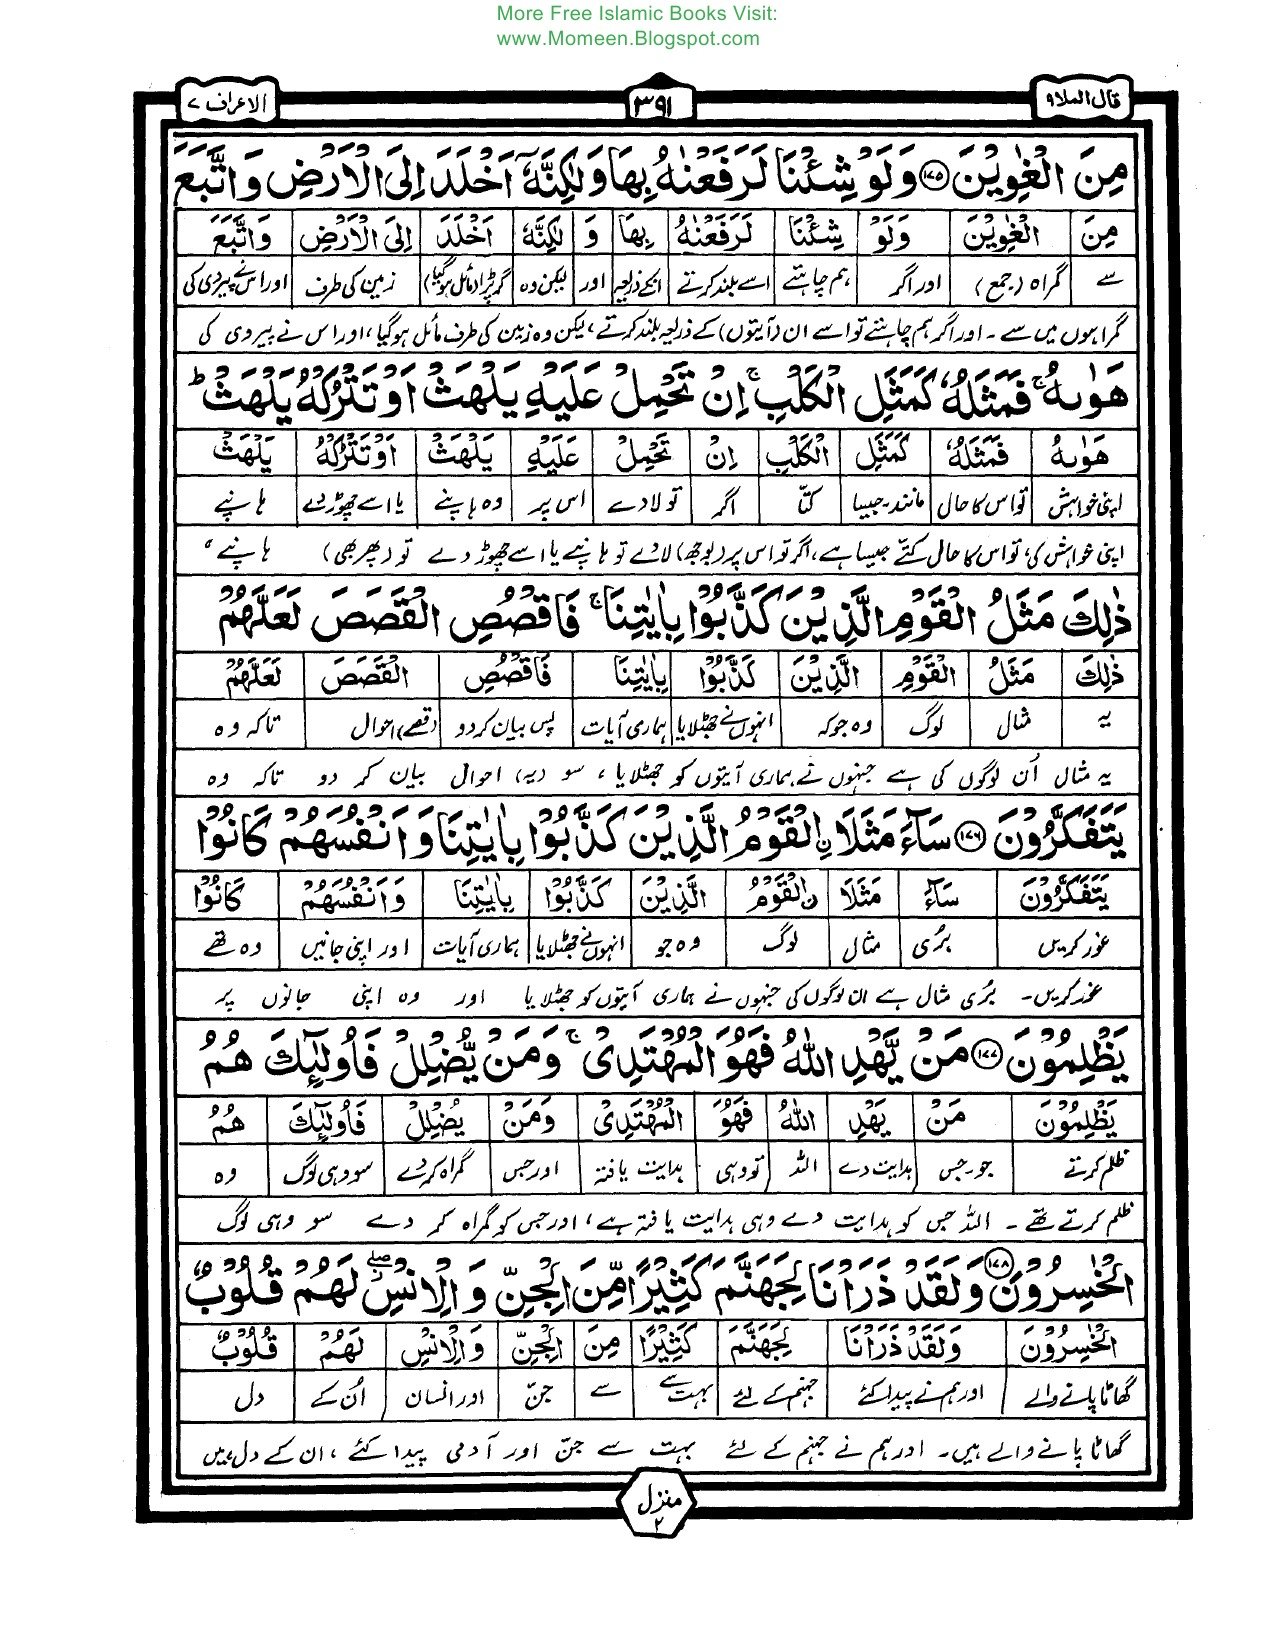 More Free Islamic Books Visit:
www.Momeen.Blogspot.com
قال الملا ۹
۳۹۱
الاعراف ۷
مِنَ الْغٰوِیْنَ ۱۷۵ وَلَوْ شِئْنَا لَرَفَعْنٰهُ بِهَا وَلٰكِنَّهٗۤ اَخْلَدَ اِلَى الْاَرْضِ وَاتَّبَعَ
مِنَ الْغٰوِیْنَ وَلَوْ شِئْنَا لَرَفَعْنٰهُ بِهَا وَ لٰكِنَّهٗ اَخْلَدَ اِلَى الْاَرْضِ وَاتَّبَعَ
سے گمراہ (جمع) اور اگر ہم چاہتے اسے بلند کرتے انکے ذریعہ اور لیکن وہ گرپڑا (مائل ہوگیا) زمین کی طرف اور اس نے پیروی کی
گمراہوں میں سے ۔ اور اگر ہم چاہتے تو اسے ان (آیتوں) کے ذریعہ بلند کرتے ، لیکن وہ زمین کی طرف مائل ہوگیا ، اور اس نے پیروی کی
هَوٰىهُ ۚ فَمَثَلُهٗ كَمَثَلِ الْكَلْبِ ۚ اِنْ تَحْمِلْ عَلَیْهِ یَلْهَثْ اَوْ تَتْرُكْهُ یَلْهَثْ ؕ
هَوٰىهُ فَمَثَلُهٗ كَمَثَلِ الْكَلْبِ اِنْ تَحْمِلْ عَلَیْهِ یَلْهَثْ اَوْ تَتْرُكْهُ یَلْهَثْ
اپنی خواہش تو اس کا حال مانند۔ جیسا کتّا اگر تو لادے اس پر وہ ہانپے یا اسے چھوڑ دے ہانپے
اپنی خواہش کی ، تو اس کا حال کتّے جیسا ہے ، اگر تو اس پر (بوجھ) لادے تو ہانپے یا اسے چھوڑ دے تو (پھر بھی) ہانپے ،
ذٰلِكَ مَثَلُ الْقَوْمِ الَّذِیْنَ كَذَّبُوْا بِاٰیٰتِنَا ۚ فَاقْصُصِ الْقَصَصَ لَعَلَّهُمْ
ذٰلِكَ مَثَلُ الْقَوْمِ الَّذِیْنَ كَذَّبُوْا بِاٰیٰتِنَا فَاقْصُصِ الْقَصَصَ لَعَلَّهُمْ
یہ مثال لوگ وہ جو کہ انہوں نے جھٹلایا ہماری آیات پس بیان کردو (قصے) احوال تاکہ وہ
یہ مثال اُن لوگوں کی ہے جنہوں نے ہماری آیتوں کو جھٹلایا ، سو (یہ) احوال بیان کر دو تاکہ وہ
یَتَفَكَّرُوْنَ ۱۷۶ سَآءَ مَثَلَا ۨالْقَوْمُ الَّذِیْنَ كَذَّبُوْا بِاٰیٰتِنَا وَاَنْفُسَهُمْ كَانُوْا
یَتَفَكَّرُوْنَ سَآءَ مَثَلَا ۨالْقَوْمُ الَّذِیْنَ كَذَّبُوْا بِاٰیٰتِنَا وَاَنْفُسَهُمْ كَانُوْا
غور کریں بُری مثال لوگ وہ جو انہوں نے جھٹلایا ہماری آیات اور اپنی جانیں وہ تھے
غور کریں۔ بُری مثال ہے ان لوگوں کی جنہوں نے ہماری آیتوں کو جھٹلایا اور وہ اپنی جانوں پر
یَظْلِمُوْنَ ۱۷۷ مَنْ یَّهْدِ اللّٰهُ فَهُوَ الْمُهْتَدِیْ ۚ وَمَنْ یُّضْلِلْ فَاُولٰٓىِٕكَ هُمُ
یَظْلِمُوْنَ مَنْ یَهْدِ اللّٰهُ فَهُوَ الْمُهْتَدِیْ وَمَنْ یُضْلِلْ فَاُولٰٓىِٕكَ هُمُ
ظلم کرتے جو۔ جس ہدایت دے اللہ تو وہی ہدایت یافتہ اور جس گمراہ کردے سو وہی لوگ وہ
ظلم کرتے تھے ۔ اللہ جس کو ہدایت دے وہی ہدایت یافتہ ہے ، اور جس کو گمراہ کر دے سو وہی لوگ
الْخٰسِرُوْنَ ۱۷۸ وَلَقَدْ ذَرَاْنَا لِجَهَنَّمَ كَثِیْرًا مِّنَ الْجِنِّ وَالْاِنْسِ ۖؗ لَهُمْ قُلُوْبٌ
الْخٰسِرُوْنَ وَلَقَدْ ذَرَاْنَا لِجَهَنَّمَ كَثِیْرًا مِنَ الْجِنِّ وَالْاِنْسِ لَهُمْ قُلُوْبٌ
گھاٹا پانے والے اور ہم نے پیدا کئے جہنم کے لئے بہت سے سے جنّ اور انسان اُن کے دل
گھاٹا پانے والے ہیں۔ اور ہم نے جہنم کے لئے بہت سے جنّ اور آدمی پیدا کئے ، ان کے دل ہیں
منزل ۲